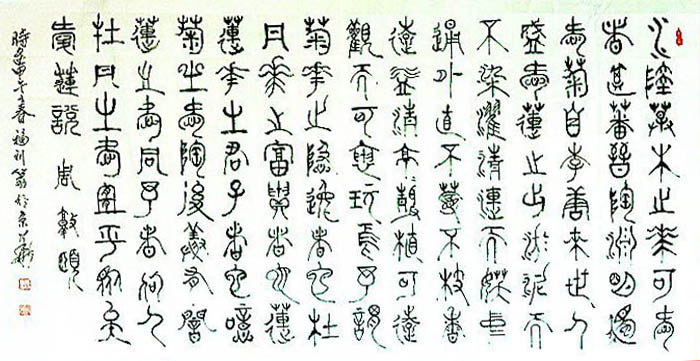 水陸草木之花可愛
者甚蕃晉陶淵明獨
愛菊自李唐來世人
盛愛蓮之出淤泥而
不染濯清漣而妖中
通外直不蔓不枝香
遠益清亭靜植可遠
觀不可褻玩焉予謂
菊花之隱逸者也牡
丹花之富貴者也蓮
蓮花之君子者也噫
菊之愛陶後鮮有聞
蓮之愛同予者何人
牡丹之愛宜乎眾矣
愛蓮說 周敦頤
甲午春